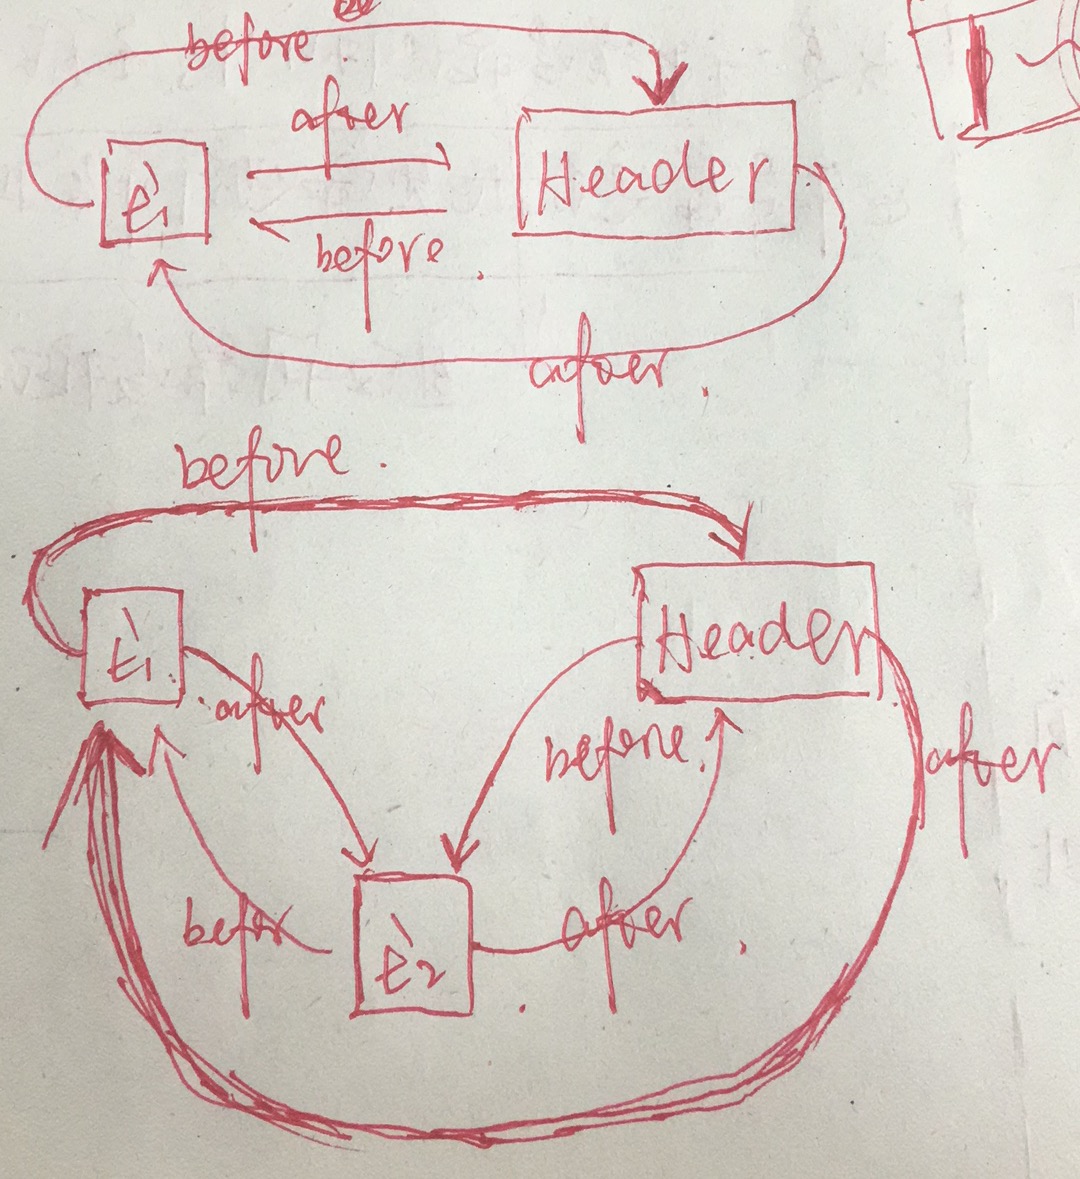 before
after
è1
Header
before
after
before
è1
Header
after
before
after
befor
after
è2